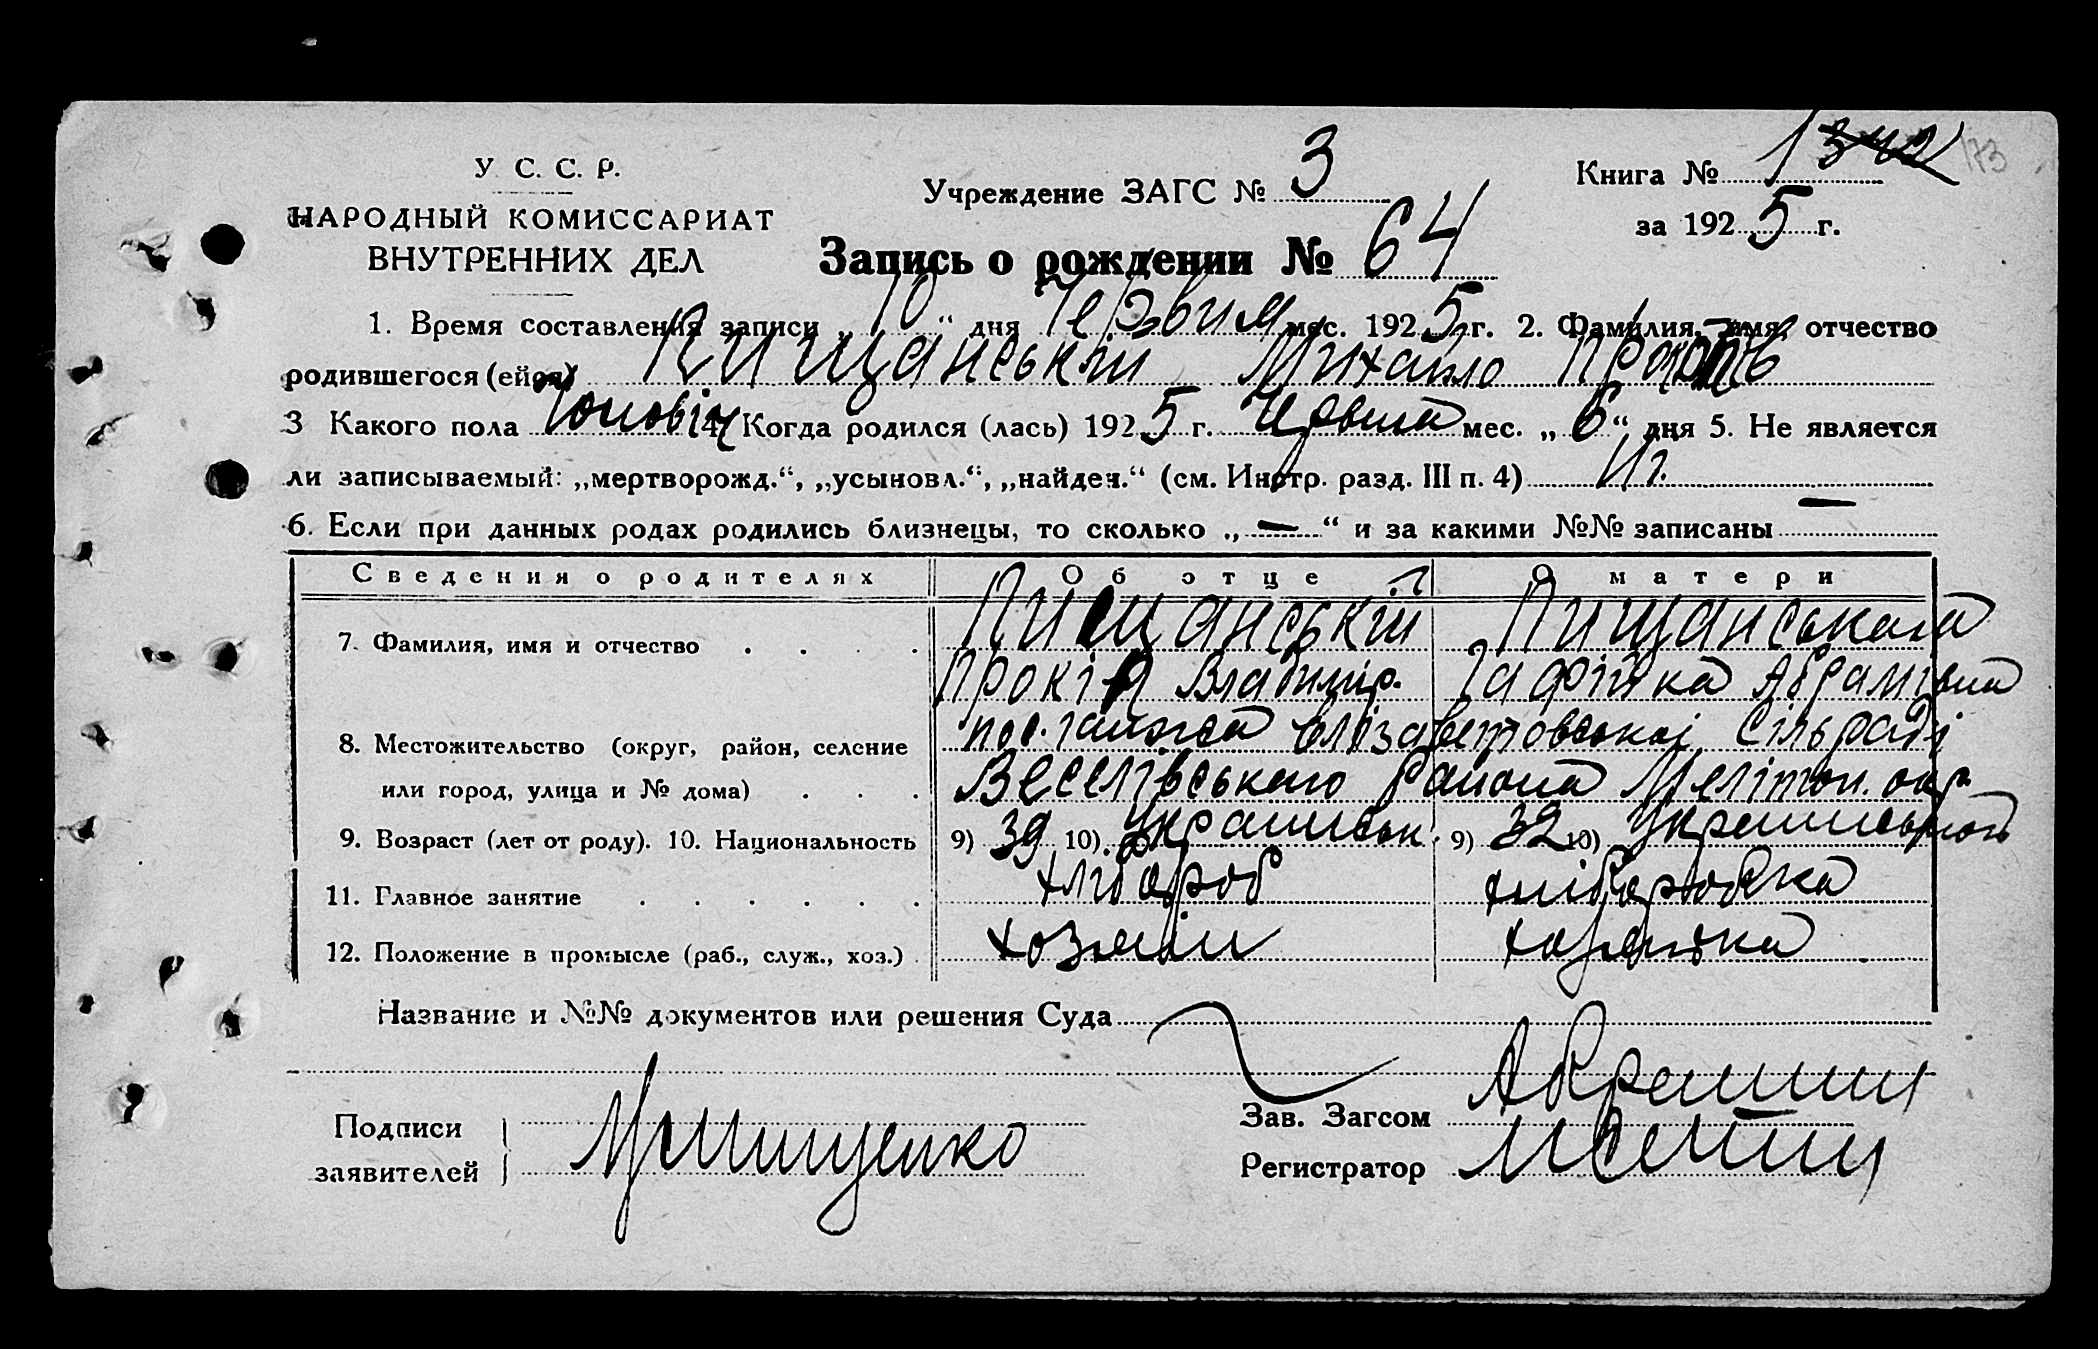 У. С. С. Р.
НАРОДНЫЙ КОМИССАРИАТ
ВНУТРЕННИХ ДЕЛ
Учреждение ЗАГС № 3
Книга № 1 342 173
за 1925 г.
Запись о рождении № 64
1. Время составления записи „10“ дня Червня мес. 1925 г. 2. Фамилия, имя, отчество
родившегося (ейся) Пищанський Михайло
3 Какого пола чоловіч 4. Когда родился (лась) 1925 г. Червня мес. „6“ дня 5. Не является
ли записываемый: „мертворожд.“, „усыновл.“, „найден.“ (см. Инстр. разд. III п. 4) Ні.
6. Если при данных родах родились близнецы, то сколько „—“ и за какими №№ записаны —
Сведения о родителях Об отце О матери
7. Фамилия, имя и отчество Пищанський Пищанськая
Прокіп Владимір. Гафійка Абрамовна
8. Местожительство (округ, район, селение пос. Єлізаветовської Сільради
или город, улица и № дома) Веселівського района Мелітоп. окр
9. Возраст (лет от роду). 10. Национальность 9) 39 10) Украинськ. 9) 32 10)
11. Главное занятие хлібороб хліборобка
12. Положение в промысле (раб., служ., хоз.) хозяїн хозяйка
Название и №№ документов или решения Суда
Подписи
заявителей
Зав. Загсом
Регистратор